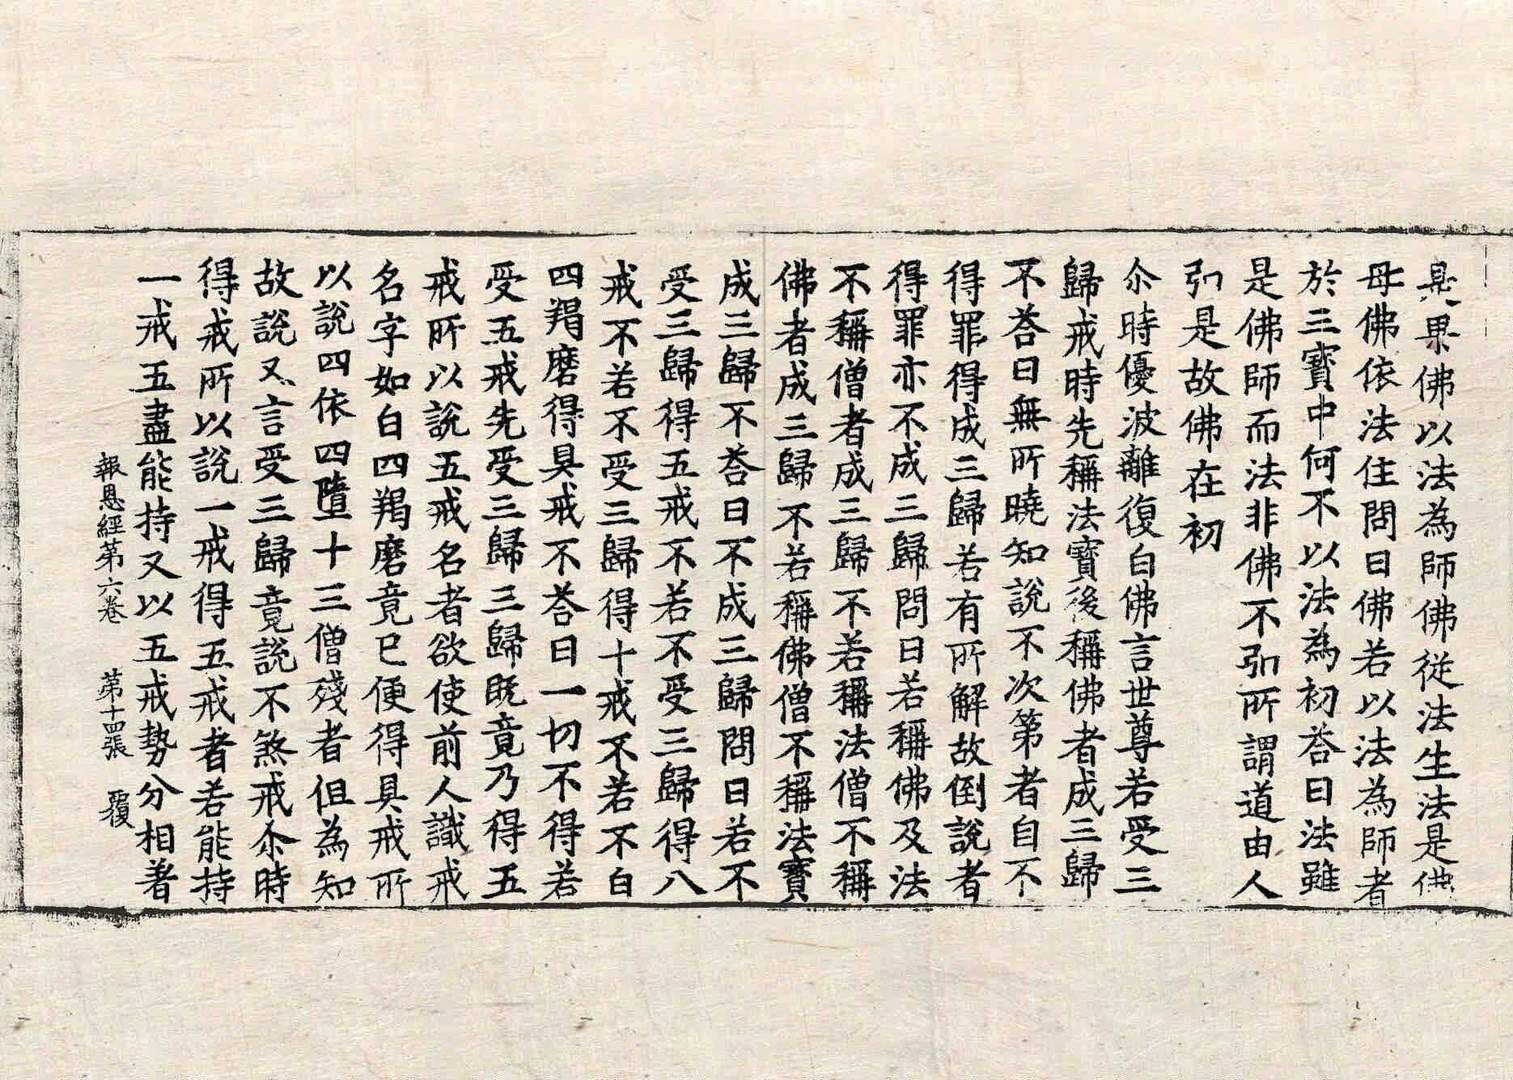 是果佛以法為師佛從法生法是佛
母佛依法住問曰佛若以法為師者
於三寶中何不以法為初荅曰法雖
是佛師而法非佛不弘所謂道由人
弘是故佛在初
尒時優波離復白佛言世尊若受三
歸戒時先稱法寶後稱佛者成三歸
不荅曰無所曉知說不次第者自不
得罪得成三歸若有所解故倒說者
得罪亦不成三歸問曰若稱佛及法
不稱僧者成三歸不若稱法僧不稱
佛者成三歸不若稱佛僧不稱法寶
成三歸不荅曰不成三歸問曰若不
受三歸得五戒不若不受三歸得八
戒不若不受三歸得十戒不若不白
四羯磨得具戒不荅曰一切不得若
受五戒先受三歸三歸既竟乃得五
戒所以說五戒名者欲使前人識戒
名字如白四羯磨竟已便得具戒所
以說四依四墮十三僧殘者但為知
故說又言受三歸竟說不煞戒尒時
得戒所以說一戒得五戒者若能持
一戒五盡能持又以五戒勢分相著
報恩經第六卷　第十四張　覆